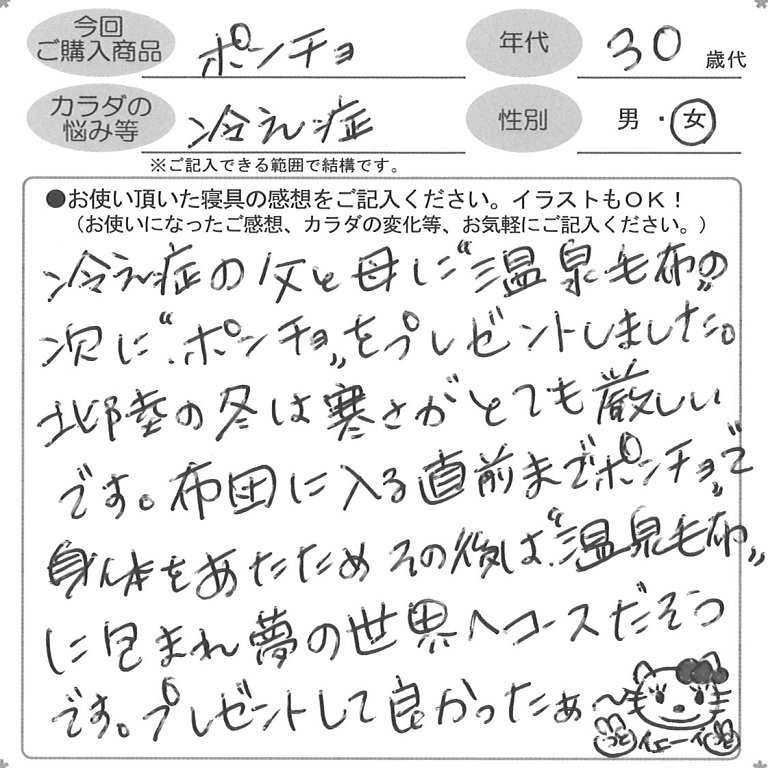 今回
ご購入商品
ポンチョ
年代
30 歳代
カラダの
悩み等
冷え症
性別
男・女
※ご記入できる範囲で結構です。
●お使い頂いた寝具の感想をご記入ください。イラストもOK!
(お使いになったご感想、カラダの変化等、お気軽にご記入ください。)
冷え症の父と母に“温泉毛布”の
次に“ポンチョ”をプレゼントしました。
北陸の冬は寒さがとても厳しい
です。布団に入る直前までポンチョ”で
身体をあたため その後は“温泉毛布”
に包まれ夢の世界へコースだそう
です。プレゼントして良かったぁ〜
イエーイ